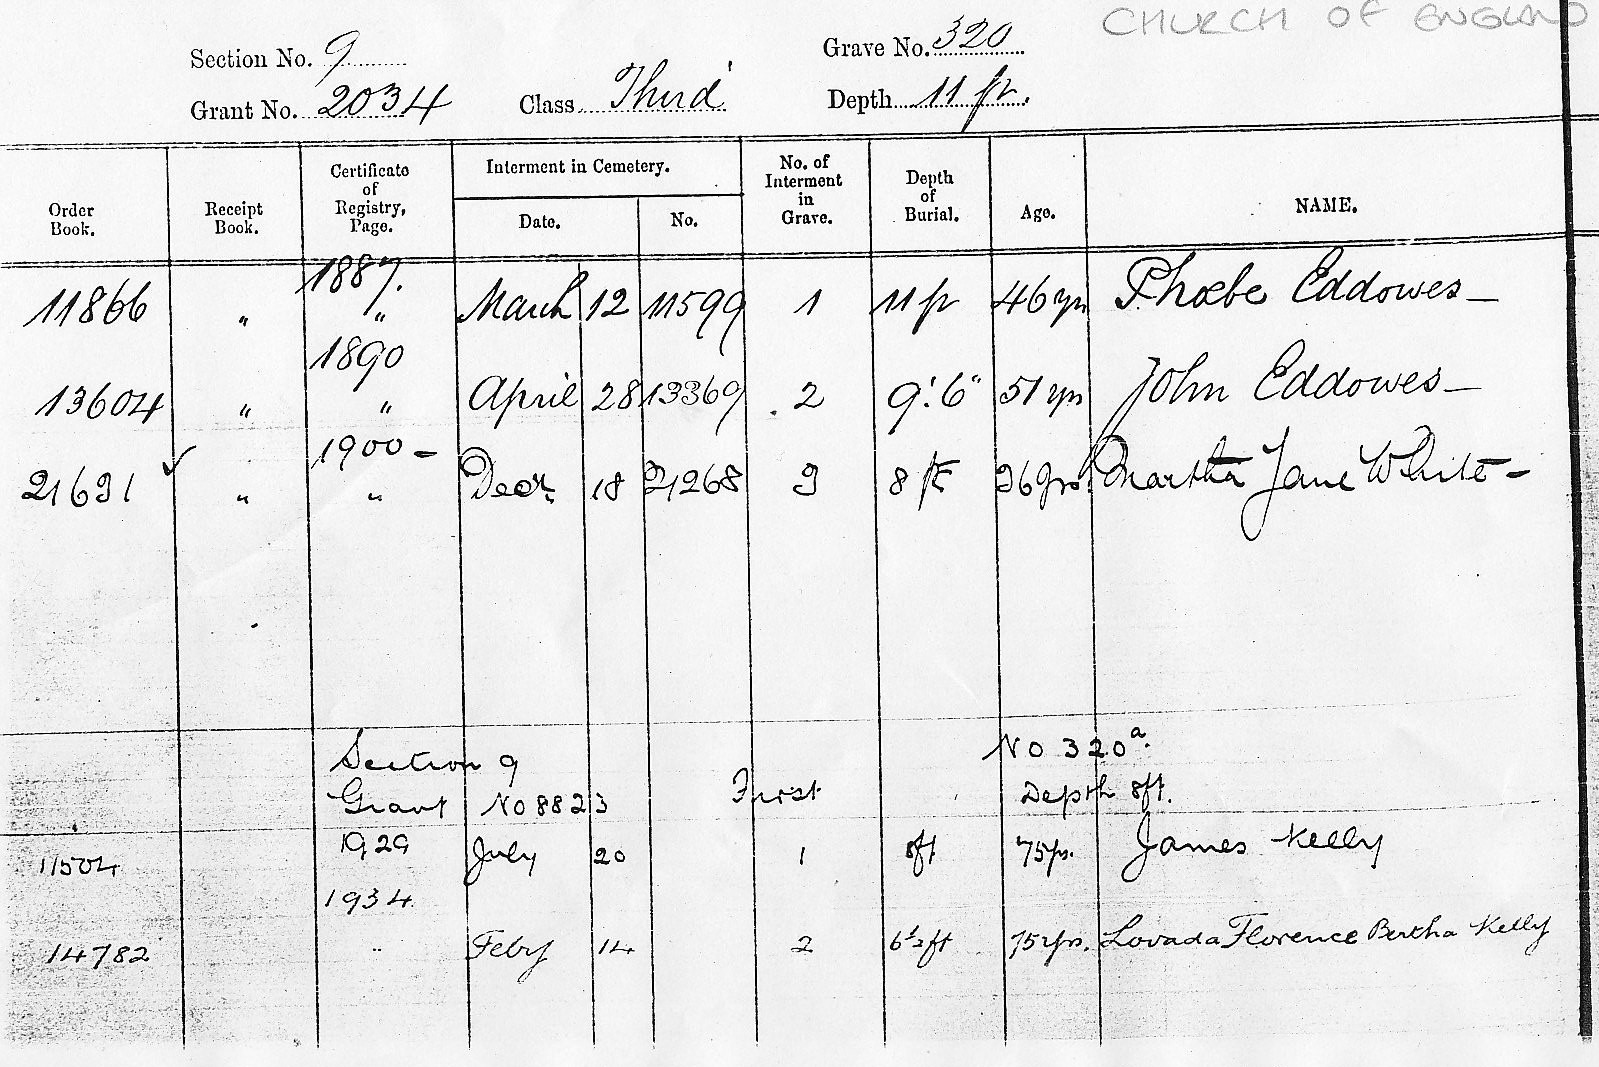 CHURCH OF ENGLAND
Section No. 9 Grave No. 320
Grant No. 2034 Class Third Depth 11 ft.
Order Book. Receipt Book. Certificate of Registry, Page. Interment in Cemetery. Date. No. No. of Interment in Grave. Depth of Burial. Age. NAME.
1887.
11866 " " March 12 11599 1 11 ft 46 yrs Phoebe Eddowes —
1890
13604 " " April 28 13369 2 9' 6" 51 yrs John Eddowes —
1900 —
21631 " " Decr. 18 21268 3 8 ft 36 yrs. Martha Jane White —
Section 9 No 320a.
Grant No 8823 First Depth 8ft.
1929
11504 July 20 1 8ft 75 yrs. James Kelly
1934
14782 " Feby 14 2 6½ft 75 yrs. Lovada Florence Bertha Kelly